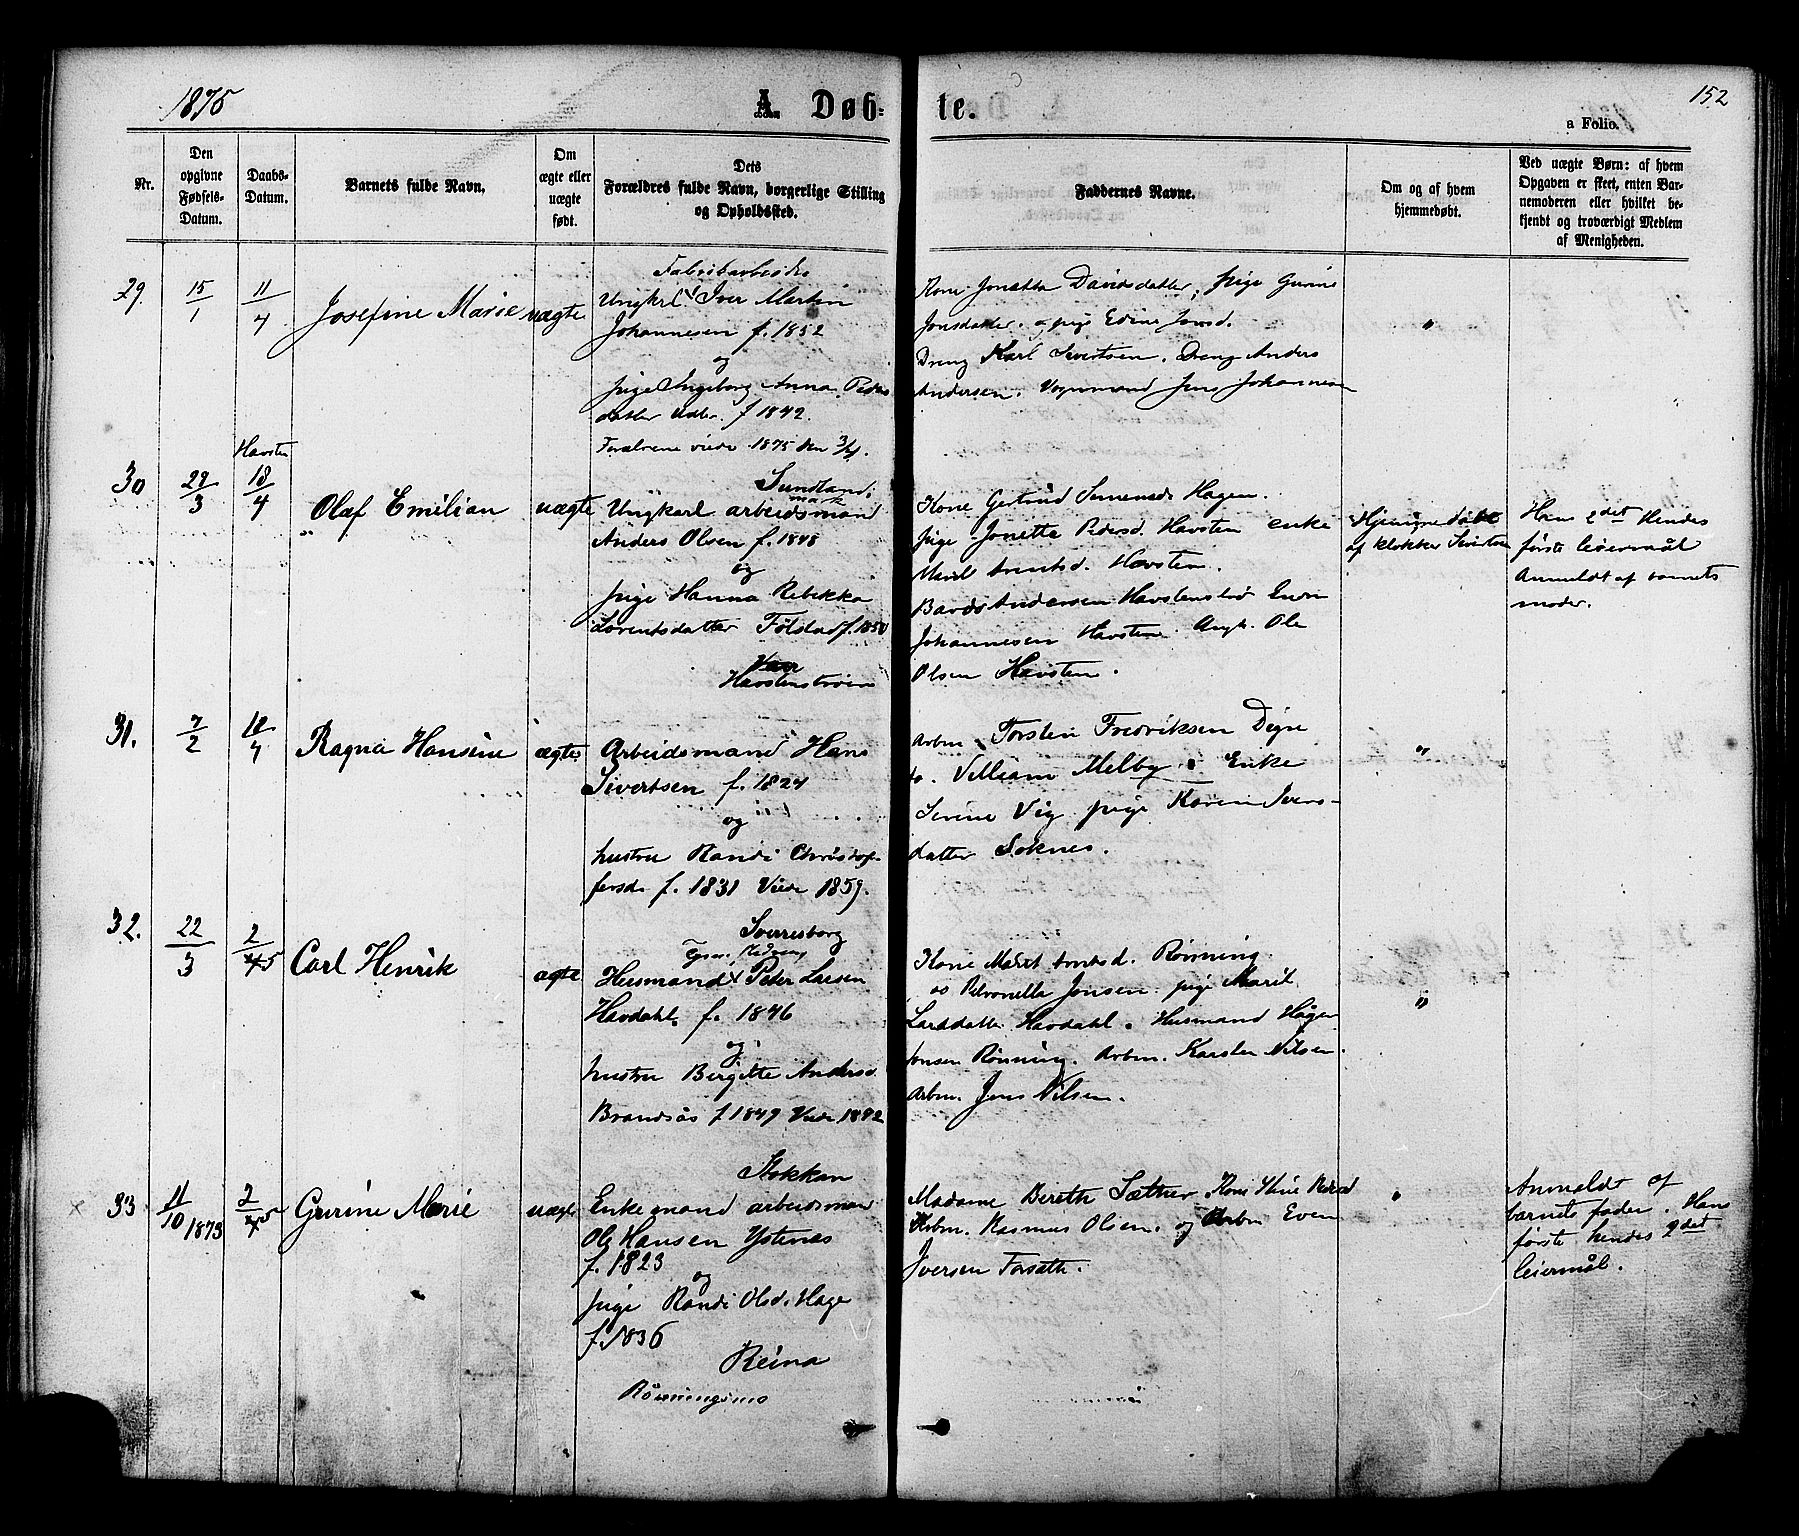 1875
A. Døb-
te.
152
a Folio.
Nr.
Den
opgivne
Fødsels-
Datum.
Daabs-
Datum.
Barnets fulde Navn.
Om
ægte eller
uægte
født.
Dets
Forældres fulde Navn, borgerlige Stilling
og Opholdssted.
Faddernes Navne.
Om og af hvem
hjemmedøbt.
Ved uægte Børn: af hvem
Opgaven er skeet, enten Bar-
nemoderen eller hvilket be-
kjendt og troværdigt Medlem
af Menigheden.
29.
15/1
11/4
Josefine Marie
uægte
Fabrikarbeider
Ungkrl Iver Martin
Johannesen f. 1852
og
pige Ingeborg Anna Peders
datter f 1842.
Forældrene viede 1875 den 3/4.
Kone Jonetta Davidsdatter, pige Gurine
Jonsdatter. og pige Edine Jonsd.
Dreng Karl Sivertsen. Dreng Anders
Andersen. Vognmand Jens Johannesen
"
30
29/3
Havsten
18/4
Olaf Emilian
uægte
Sundland
mark
Ungkarl arbeidsmand
Anders Olsen f. 1848
og
pige Hanna Rebekka
Lorentsdatter Følstad f. 1850
Havstenstrøen
Kone Gertrud Hagen.
pige Jonetta Pedersd. Havsten enke
Marit Arntsd. Havsten.
Bards Andersen Havstenstrø Even
Johannesen Havsten. Ungk. Ole
Olsen Havsten.
Hjemmedøbt
af klokker Sivertsen
Hans 2det Hendes
første leiermål
Anmeldt af barnets
moder.
31.
7/2
18/4
Ragna Hansine
ægte
Arbeidsmand Hans
Sivertsen f. 1824
og
hustru Randi Christof-
fersd. f. 1831 Viede 1859.
Arbm Torsten Fredriksen Digre
do. Villiam Melby. Enke
Serine Vig pige Karen Ivers-
datter Soknes.
"
32.
22/3
2/5
Carl Henrik
ægte
Sverresborg
Husmand Peter Larsen
Havdahl. f. 1846
og
hustru Birgitte Andersd.
Brandsås f 1849 Viede 1872
Kone Marit Arntsd. Rønning.
do Petronella Jonsen. pige Marit
Larsdatter Havdahl. Husmand Hågen
Jonsen Rønning. Arbm. Karsten Nilsen.
Arbm. Jens Nilsen.
"
33
11/10 1873
2/5
Gurine Marie
uægte
Stokkan
Enkemand arbeidsmand
Ole Hansen Ystenæs
f. 1823
og
pige Randi Olsd. Hage
f. 1836
Reina
Rønningsmo
Madame Bereth Sæther Kone Stine Pedersd
Arbm. Rasmus Olsen. og Arbm Even
Iversen Forsæth.
"
Anmeldt af
barnets fader. Hans
første hendes 2det
leiermål.